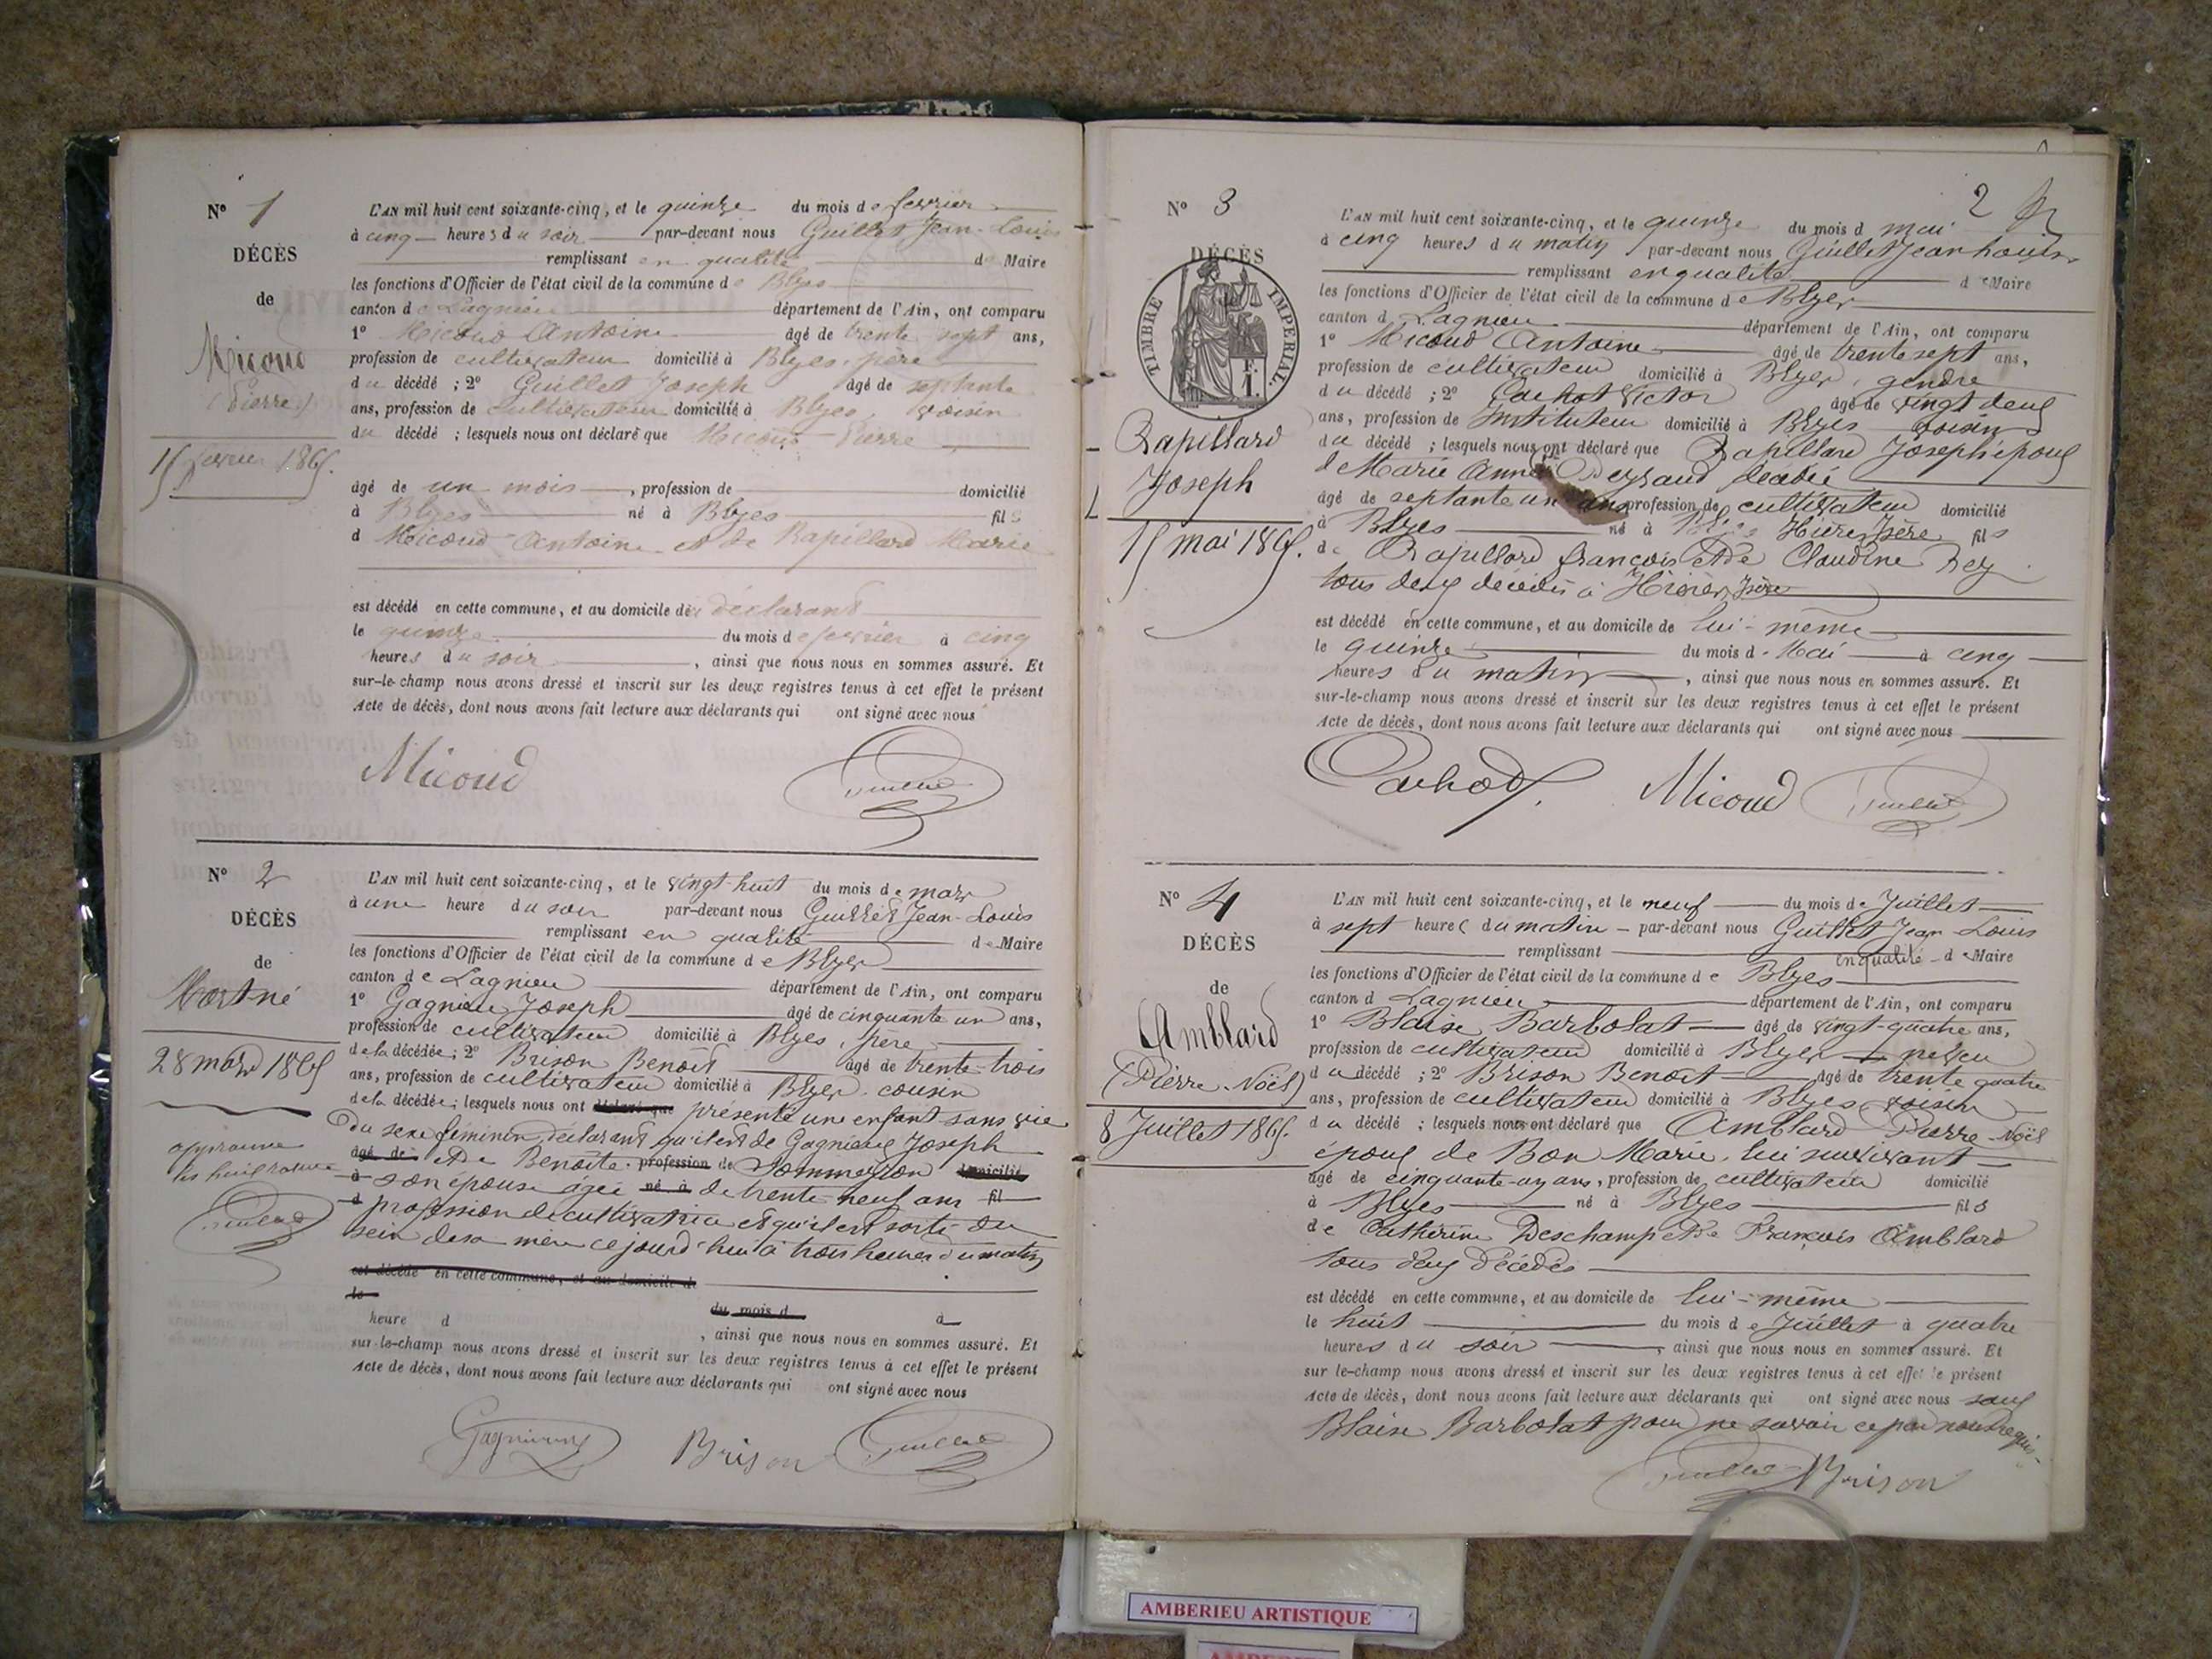 N° 1
DÉCÈS
de
Micoud
(Pierre)
15 fevrier 1865.
L'AN mil huit cent soixante-cinq, et le quinze du mois de fevrier
à cinq heures du soir par-devant nous Guillet Jean-Louis
remplissant en qualité de Maire
les fonctions d'Officier de l'état civil de la commune de Blyes
canton de Lagnieu département de l'Ain, ont comparu
1° Micoud Antoine âgé de trente sept ans,
profession de cultivateur domicilié à Blyes, père
du décédé ; 2° Guillet Joseph âgé de septante
ans, profession de cultivateur domicilié à Blyes, voisin
du décédé ; lesquels nous ont déclaré que Micoud Pierre
âgé de un mois, profession de domicilié
à Blyes né à Blyes fils
d Micoud Antoine et de Rapillard Marie
est décédé en cette commune, et au domicile du déclarant
le quinze du mois de fevrier à cinq
heures du soir, ainsi que nous nous en sommes assuré. Et
sur-le-champ nous avons dressé et inscrit sur les deux registres tenus à cet effet le présent
Acte de décès, dont nous avons fait lecture aux déclarants qui ont signé avec nous
Micoud Guillet
N° 2
DÉCÈS
de
Mort né
28 mars 1865
approuvé
les huit rature
Guillet
L'AN mil huit cent soixante-cinq, et le vingt-huit du mois de mars
à une heure du soir par-devant nous Guillet Jean-Louis
remplissant en qualité de Maire
les fonctions d'Officier de l'état civil de la commune de Blyes
canton de Lagnieu département de l'Ain, ont comparu
1° Gagnieux Joseph âgé de cinquante un ans,
profession de cultivateur domicilié à Blyes, père
de la décédée ; 2° Brison Benoît âgé de trente-trois
ans, profession de cultivateur domicilié à Blyes cousin
de la décédée ; lesquels nous ont déclaré que présenté une enfant sans vie
du sexe féminin, déclarant qu'il est de Gagnieux Joseph
âgé de et de Benoîte profession de Sommeyson domicilié
à son épouse âgée né à de trente-neuf ans fil
d profession de cultivatrice et qu'il est sorti du
sein de sa mère ce jourd'hui à trois heures du matin
est décédé en cette commune, et au domicile d
le du mois d à
heure d, ainsi que nous nous en sommes assuré. Et
sur-le-champ nous avons dressé et inscrit sur les deux registres tenus à cet effet le présent
Acte de décès, dont nous avons fait lecture aux déclarants qui ont signé avec nous
Gagnieux Brison Guillet
2
N° 3
DÉCÈS
TIMBRE IMPÉRIAL.
1 F.
Rapillard
Joseph
15 mai 1865.
L'AN mil huit cent soixante-cinq, et le quinze du mois d mai
à cinq heures du matin par-devant nous Guillet Jean Louis
remplissant en qualité de Maire
les fonctions d'Officier de l'état civil de la commune de Blyes
canton d Lagnieu département de l'Ain, ont comparu
1° Micoud Antoine âgé de trente sept ans,
profession de cultivateur domicilié à Blyes, gendre
du décédé ; 2° Cachot Victor âgé de vingt deux
ans, profession de Instituteur domicilié à Blyes voisin
du décédé ; lesquels nous ont déclaré que Rapillard Joseph époux
de Marie Anne Peysaud décédé
âgé de septante un ans profession de cultivateur domicilié
à Blyes né à Hières Isère fils
de Rapillard françois et de Claudine Rey
tous deux décédés à Hières Isère
est décédé en cette commune, et au domicile de lui-même
le quinze du mois de Mai à cinq
heures du matin, ainsi que nous nous en sommes assuré. Et
sur-le-champ nous avons dressé et inscrit sur les deux registres tenus à cet effet le présent
Acte de décès, dont nous avons fait lecture aux déclarants qui ont signé avec nous
Cachot Micoud Guillet
N° 4
DÉCÈS
de
Amblard
(Pierre-Noël)
8 Juillet 1865.
L'AN mil huit cent soixante-cinq, et le neuf du mois de Juillet
à sept heures du matin par-devant nous Guillet Jean Louis
remplissant en qualité de Maire
les fonctions d'Officier de l'état civil de la commune de Blyes
canton d Lagnieu département de l'Ain, ont comparu
1° Blaise Barbolat âgé de vingt-quatre ans,
profession de cultivateur domicilié à Blyes neveu
du décédé ; 2° Brison Benoît âgé de trente quatre
ans, profession de cultivateur domicilié à Blyes voisin
du décédé ; lesquels nous ont déclaré que Amblard Pierre-Noël
époux de Bon Marie, lui survivant
âgé de cinquante-un ans, profession de cultivateur domicilié
à Blyes né à Blyes fils
de Catherine Deschamp et de François Amblard
tous deux décédés
est décédé en cette commune, et au domicile de lui-même
le huit du mois de Juillet à quatre
heures du soir, ainsi que nous nous en sommes assuré. Et
sur-le-champ nous avons dressé et inscrit sur les deux registres tenus à cet effet le présent
Acte de décès, dont nous avons fait lecture aux déclarants qui ont signé avec nous sauf
Blaise Barbolat pour ne savoir ce par nous requis.
Guillet Brison
AMBERIEU ARTISTIQUE